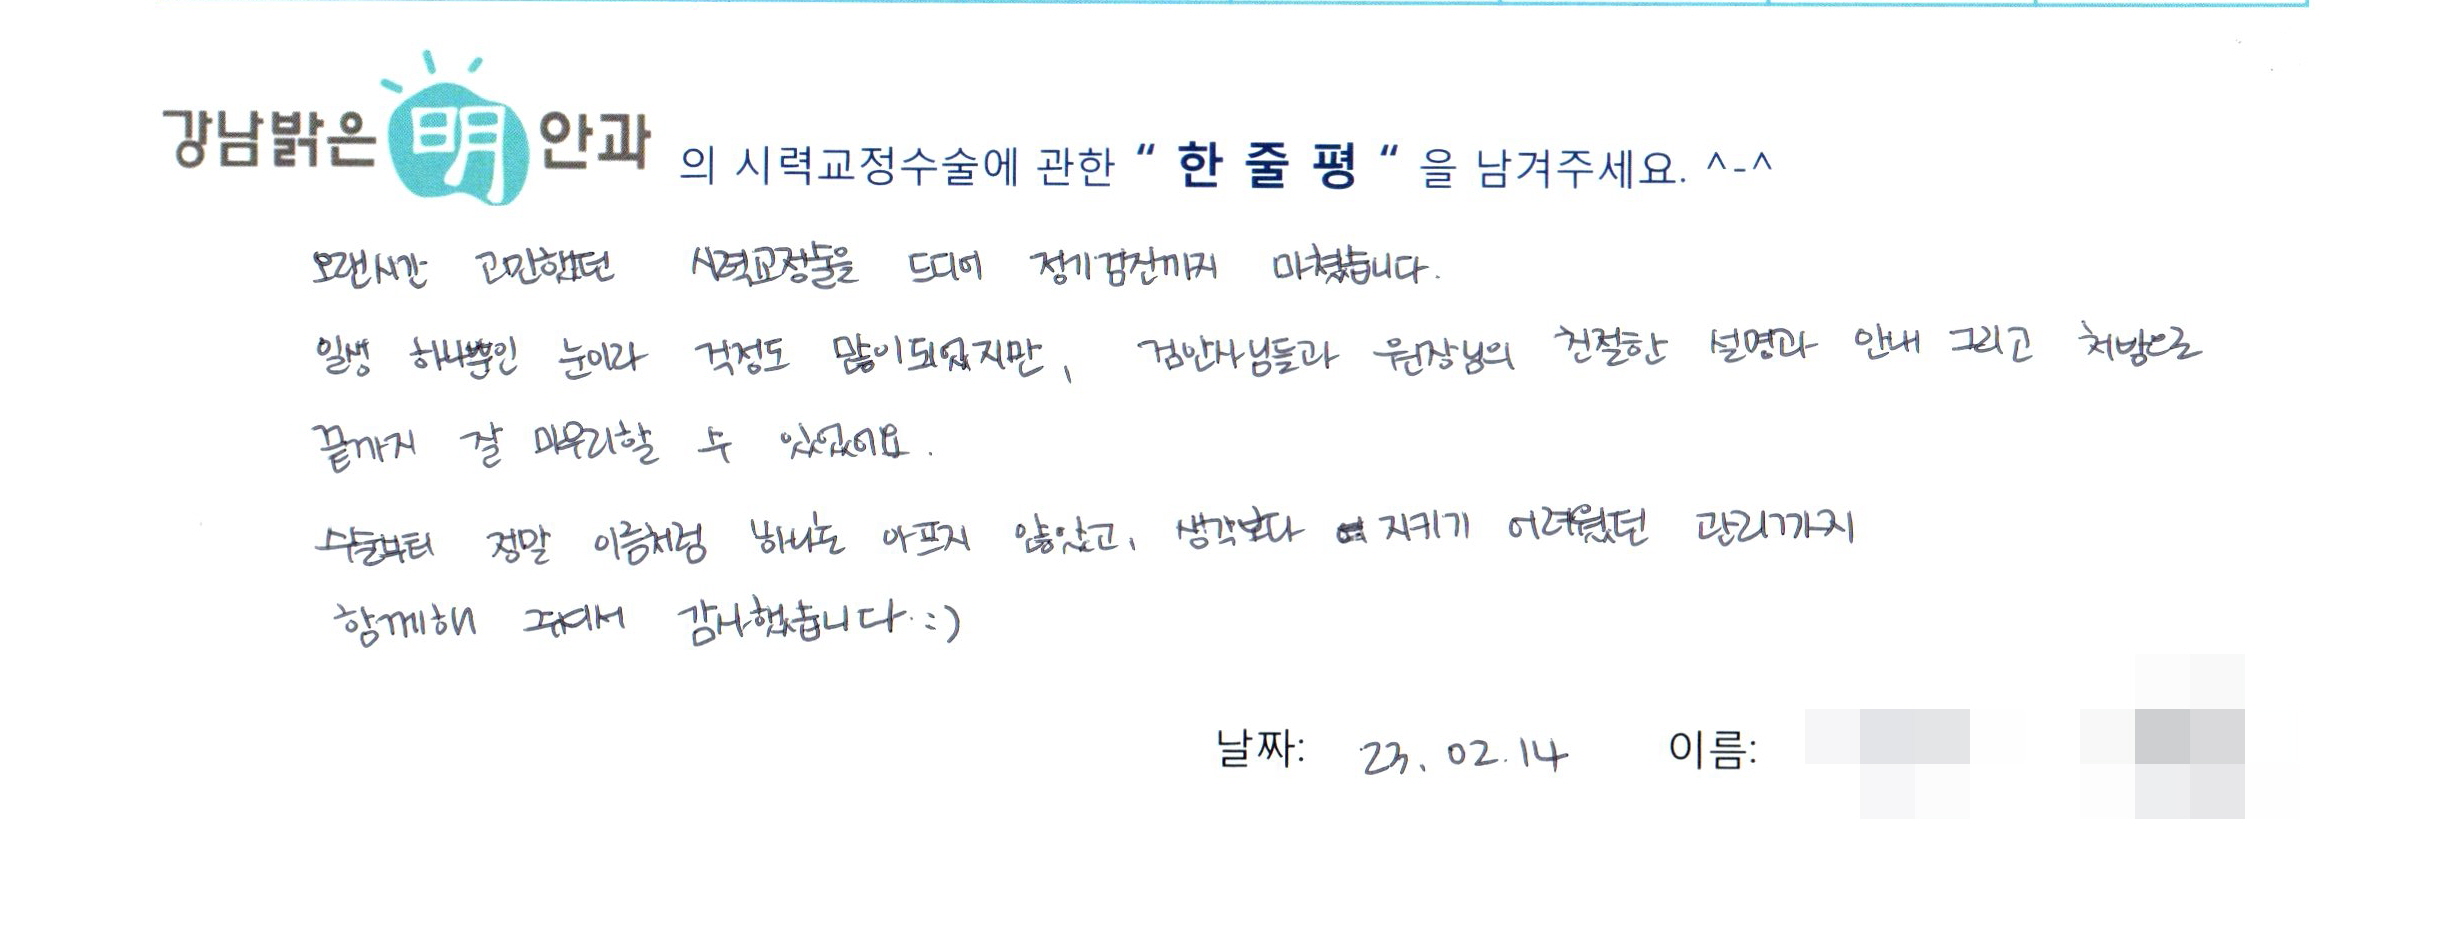 강남밝은 明 안과 의 시력교정수술에 관한 “ 한 줄 평 “ 을 남겨주세요. ^-^
오랜시간 고민했던 시력교정술을 드디어 정기검진까지 마쳤습니다.
일생 하나뿐인 눈이라 걱정도 많이되었지만, 검안사님들과 원장님의 친절한 설명과 안내 그리고 처방으로
끝까지 잘 마무리할 수 있었어요.
수술부터 정말 이름처럼 하나도 아프지 않았고, 생각보다 지키기 어려웠던 관리까지
함께해 주셔서 감사했습니다 :)
날짜: 23. 02. 14 이름: